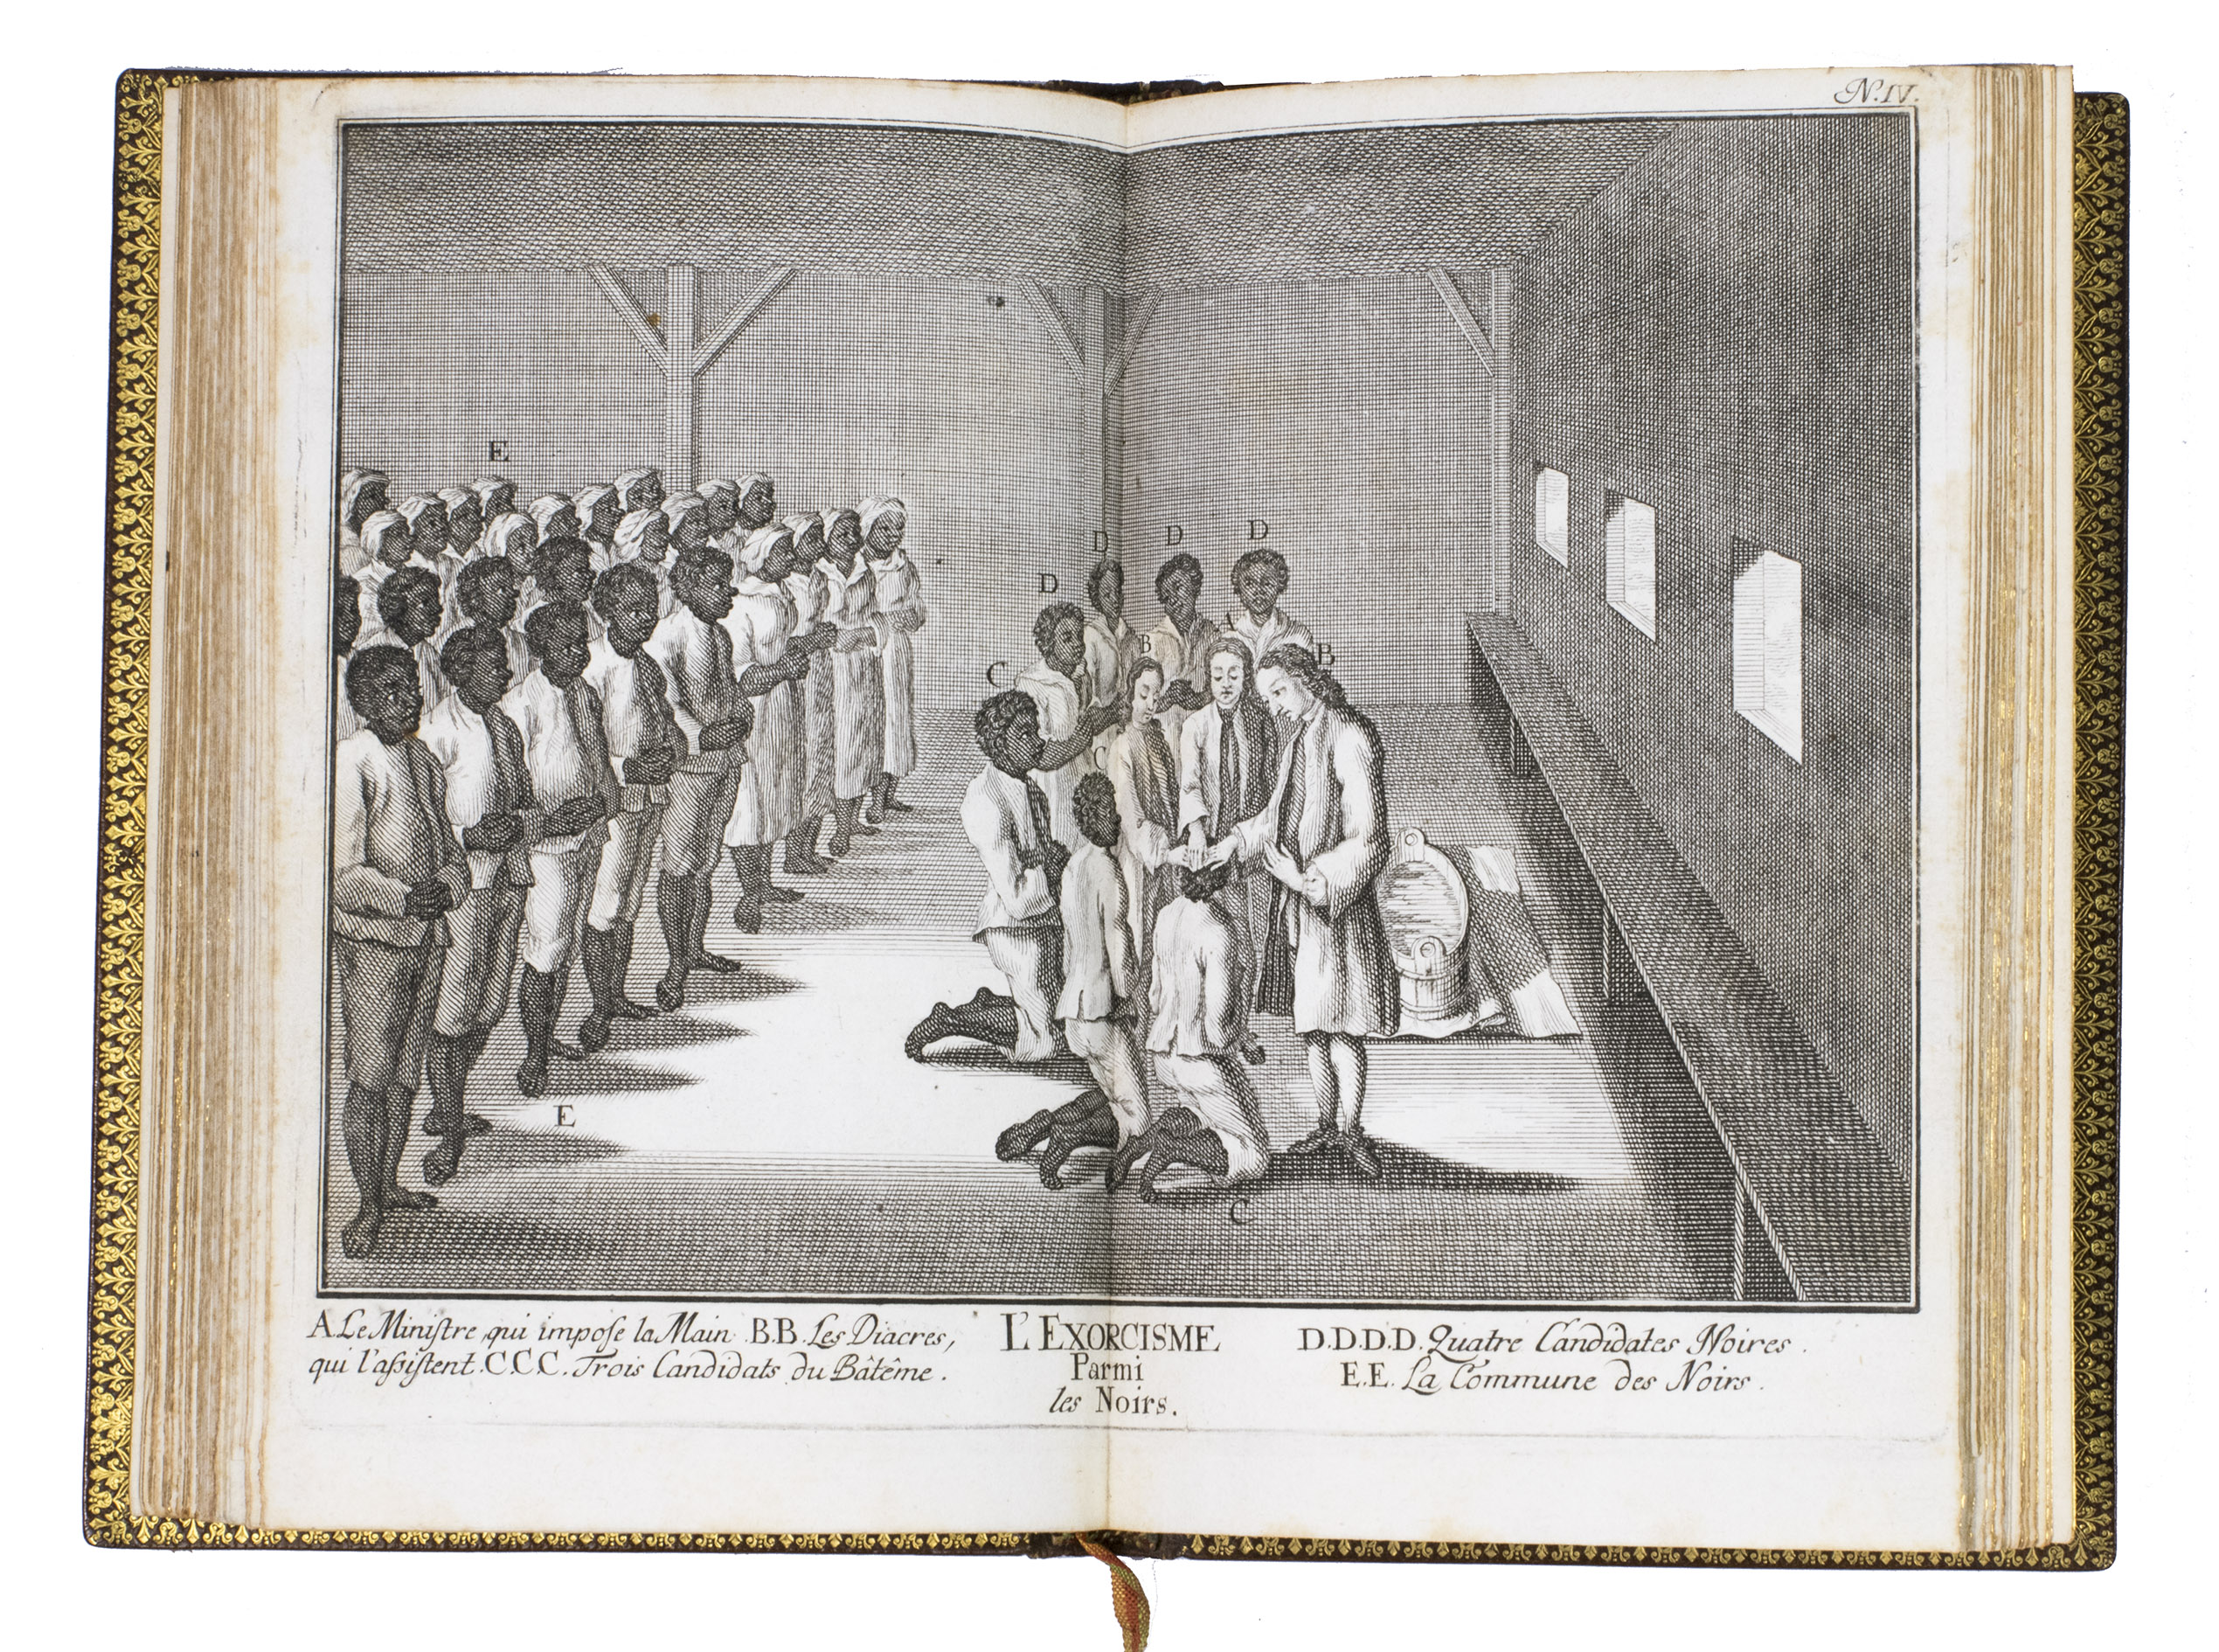 N.IV.
E
D
D
D
D
A
B
B
C
C
E
C
A. Le Miniſtre, qui impoſe la Main B.B. Les Diacres,
qui l'aſſiſtent. C.C.C. Trois Candidats du Bâtême.
L'EXORCISME
Parmi
les Noirs.
D.D.D.D. Quatre Candidates Noires.
E.E. La Commune des Noirs.